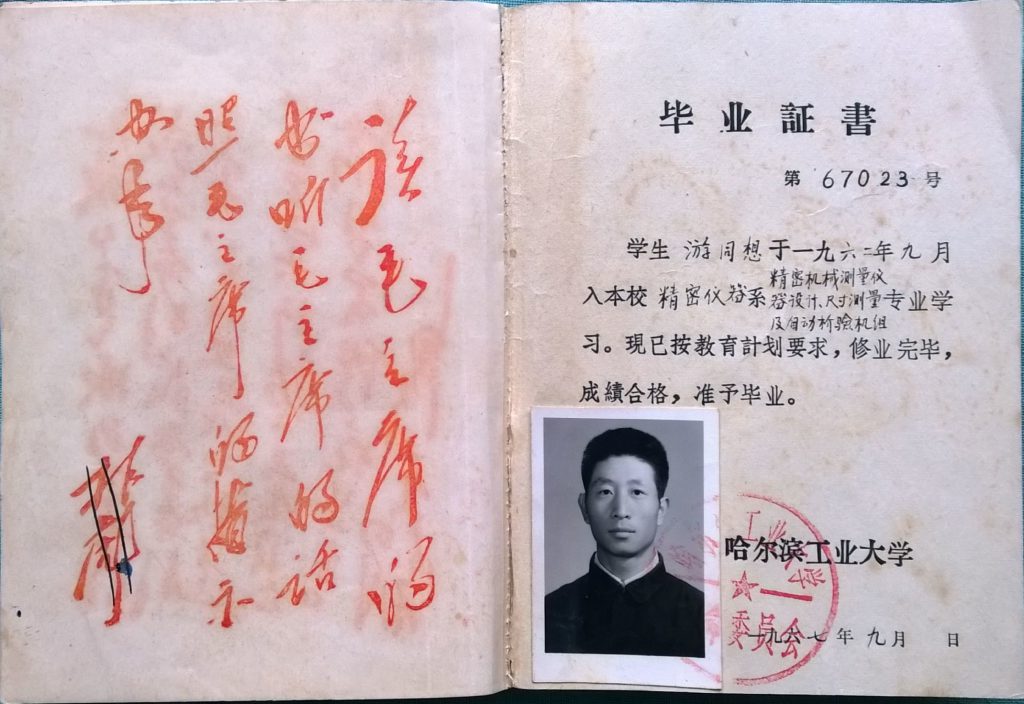 读毛主席的
书听毛主席的话
照毛主席的指示
办事
林彪
毕业証書
第 67023 号
学生 游同想 于一九六二年九月
精密机械测量仪
入本校 精密仪器系 器设计、尺寸测量 专业学
及自动检验机组
习。現已按教育計划要求，修业完毕，
成績合格，准予毕业。
哈尔滨工业大学
工业大学
委员会
一九六七年九月 日